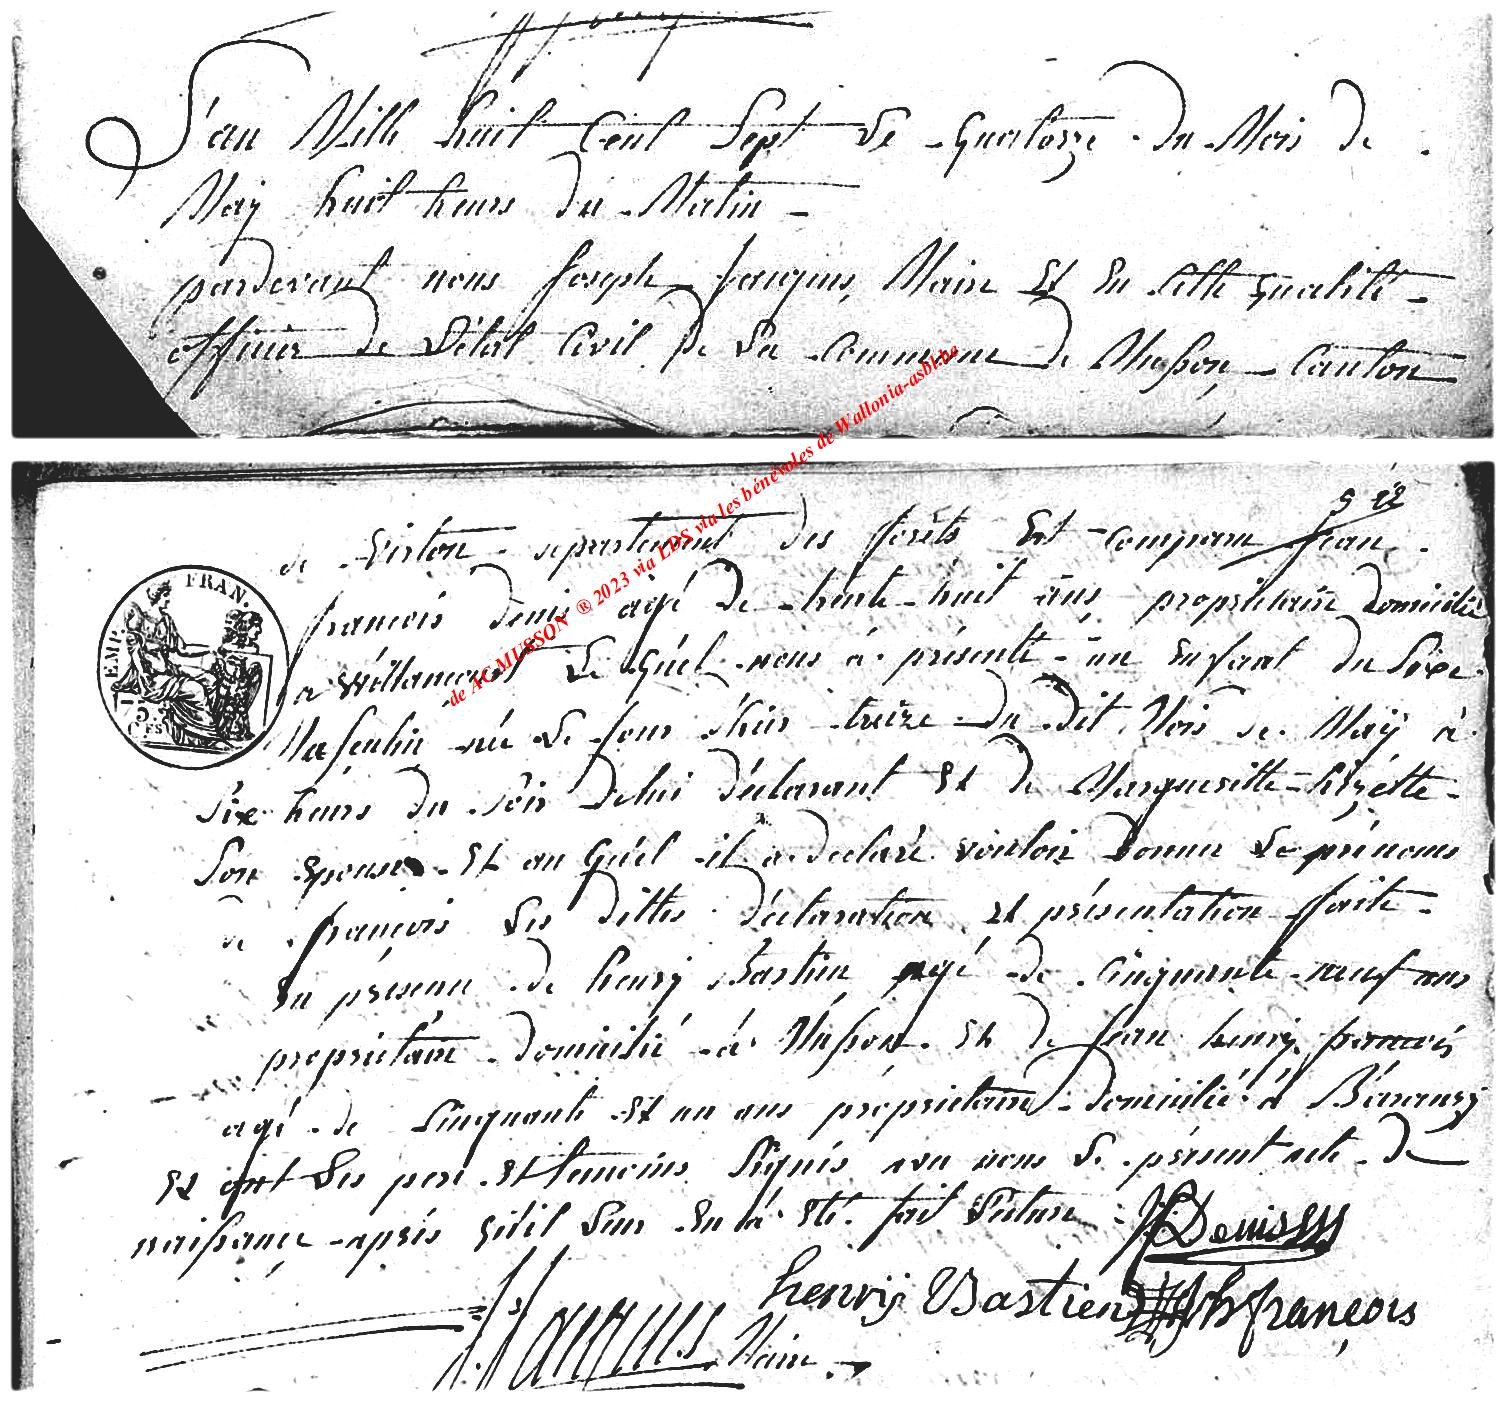 L'an Mille huit Cent Sept Le Quatorze du Mois de
May huit heurs du Matin
pardevant nous Joseph Jacques, Maire Et En Cette qualité
officier de L'état Civil de La Commune de Musson Canton
5 12
de Virton departement des forêts Est comparu Jean
françois denis agé de trente huit ans proprietaire domicilié
a Willancourt Le quel nous à présenté un Enfant du Sixe
Masculin né Le Jour d'hier treize du dit Mois de Maÿ à
Six heurs du Soir De lui déclarant Et de Margueritte Lizette
Son Epouse Et au quel il a declaré vouloir Donner Le prénoms
de françois Les dittes déclaration et présentation faite
En présence de henrÿ Bastien agé de Cinquante neuf ans
proprietaire domicilié à Musson Et de Jean henrÿ françois
agé de Cinquante Et un ans proprietaire domicilié à Baranzÿ
Et ont Les pere Et temoins Signés avec nous Le présent acte de
naissance après qu'il Leur En à Eté fait Lecture JfDenis
henrij Bastien Jhfrançois
JJacques Maire
EMP. FRAN.
75 C.ES
de AGMUSSON ® 2023 via LDS via les bénévoles de Wallonia-asbl.be